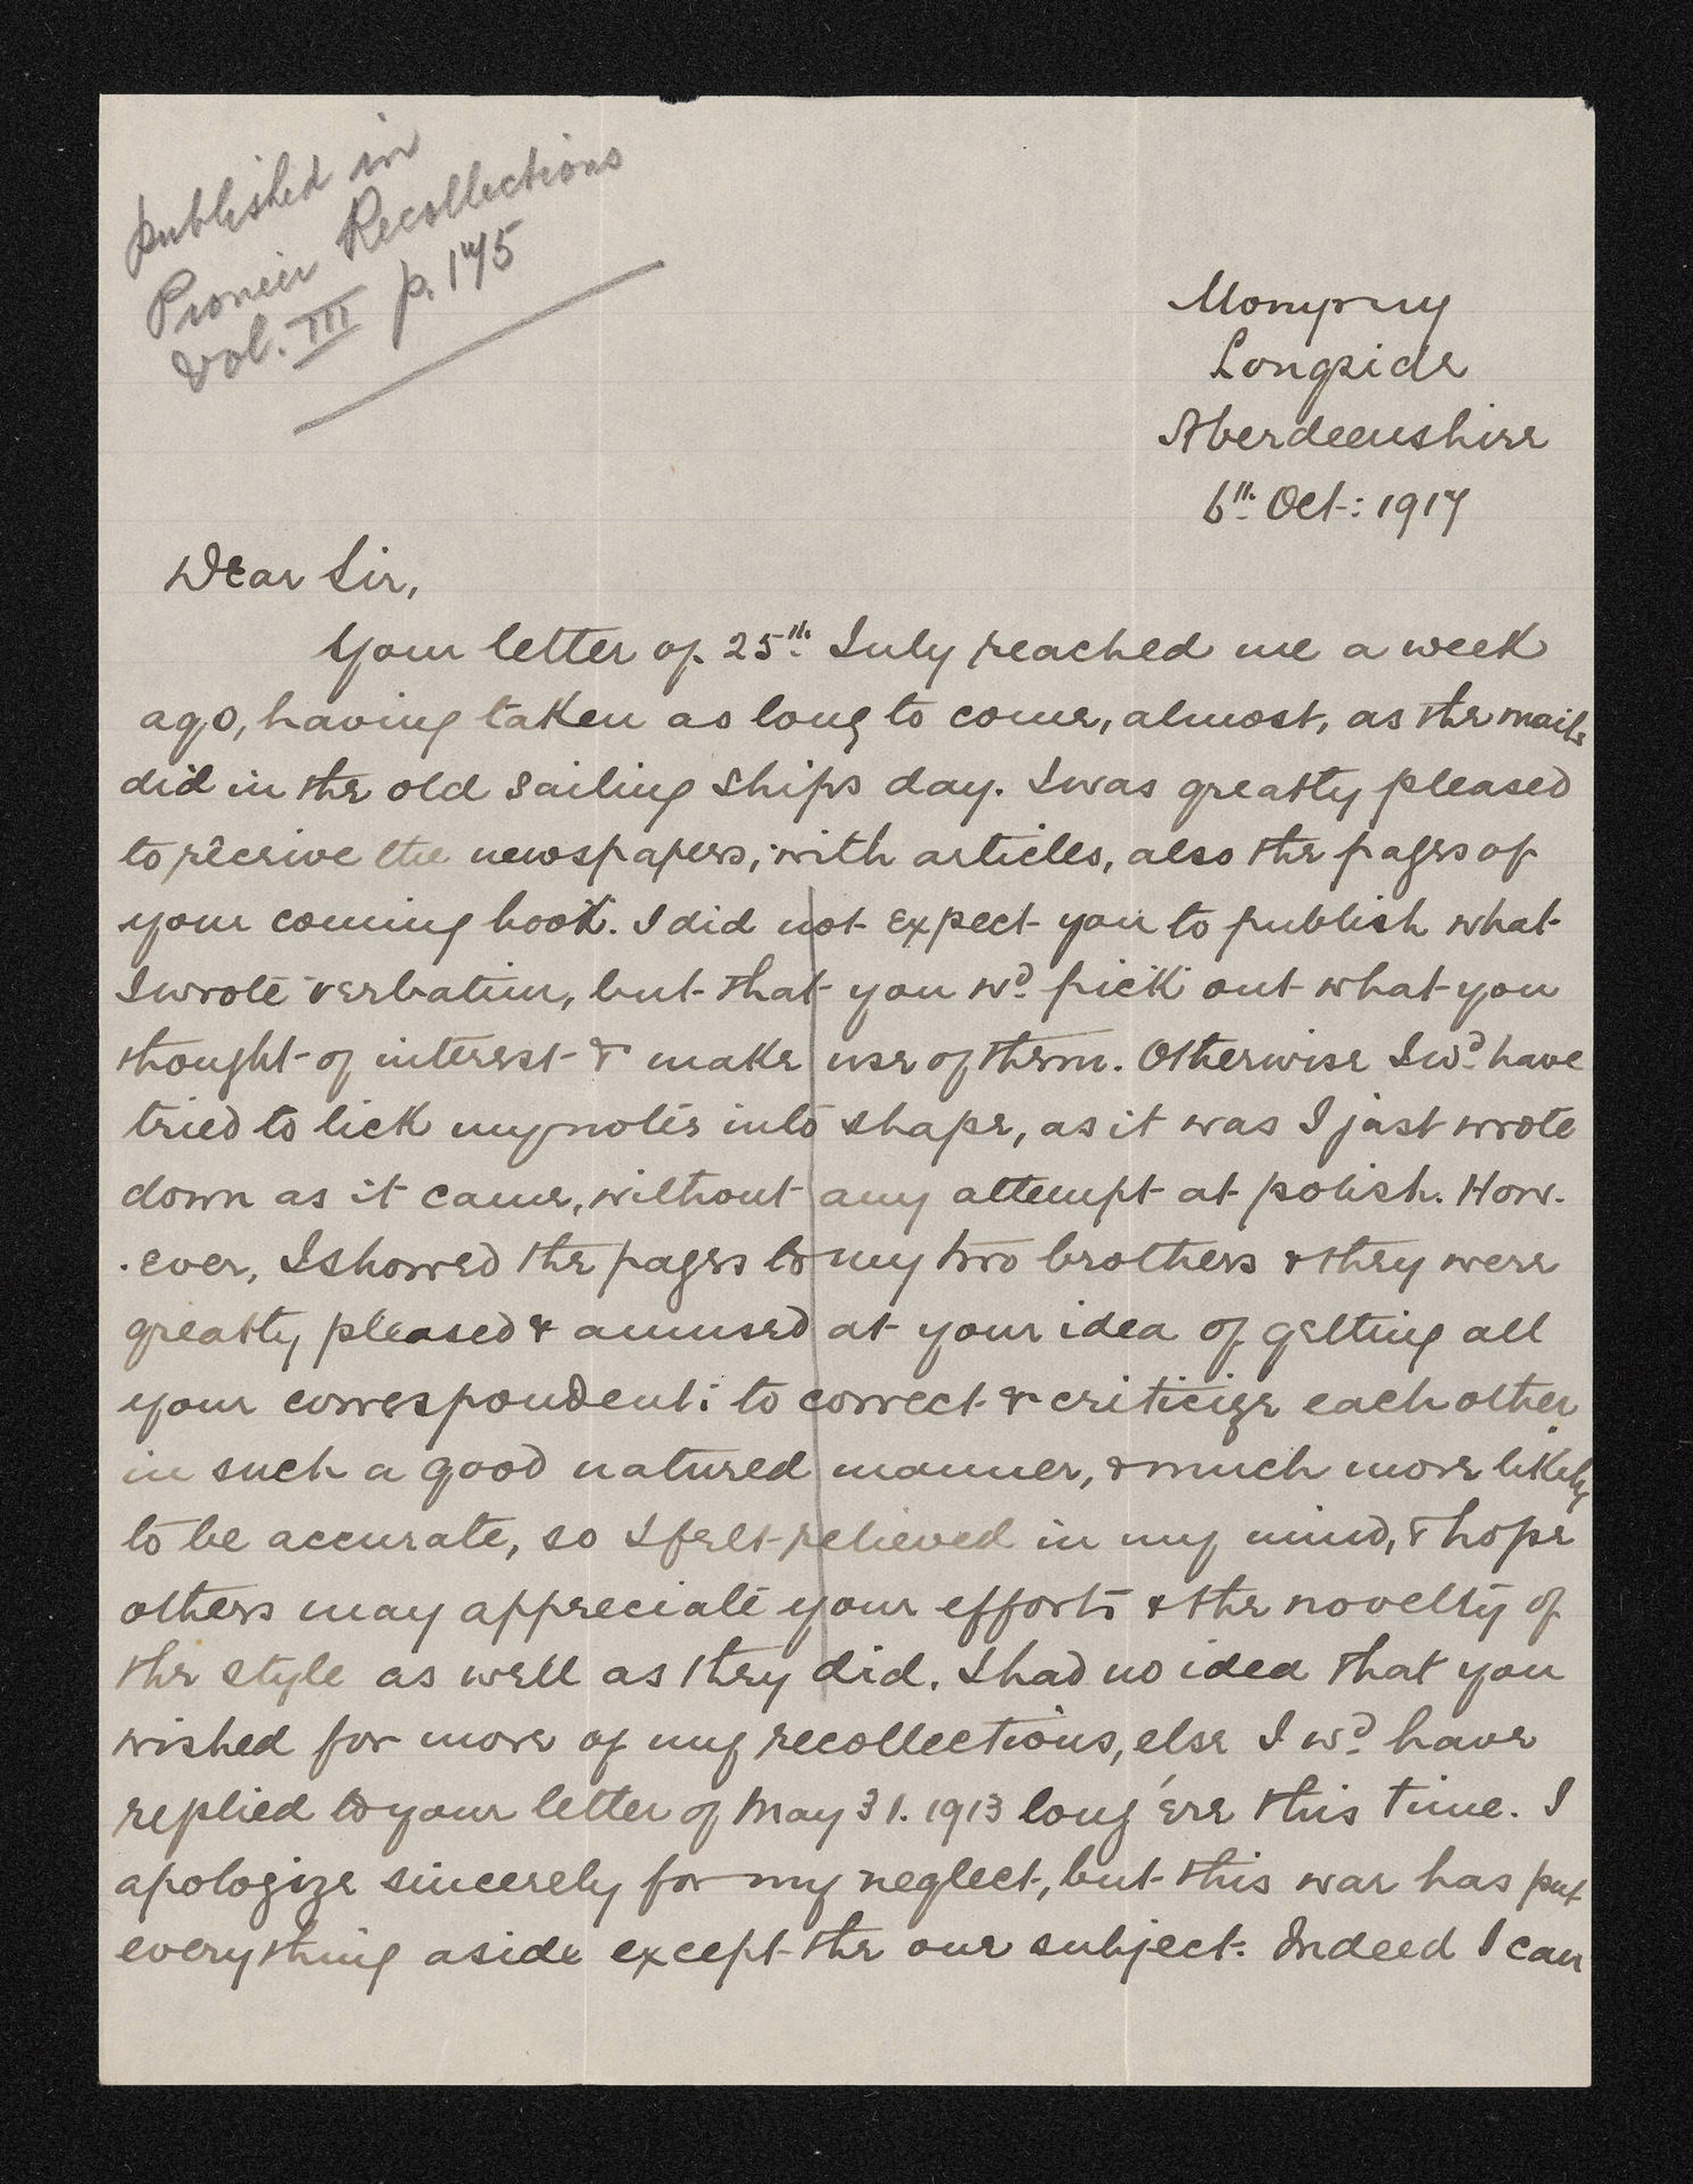 published in
Pioneer Recollections
Vol. III p. 175
Monyruy
Longside
Aberdeenshire
6th. Oct: 1917
Dear Sir,
Your letter of 25th. July reached me a week
ago, having taken as long to come, almost, as the mails
did in the old sailing ships day. I was greatly pleased
to receive the newspapers, with articles, also the pages of
your coming book. I did not expect you to publish what
I wrote verbatim, but that you wd. pick out what you
thought of interest & make use of them. Otherwise I wd. have
tried to lick my notes into shape, as it was I just wrote
down as it came, without any attempt at polish. How-
-ever, I showed the pages to my two brothers & they were
greatly pleased & amused at your idea of getting all
your correspondents to correct & criticize each other
in such a good natured manner, & much more likely
to be accurate, so I felt relieved in my mind, & hope
others may appreciate your efforts & the novelty of
the style as well as they did. I had no idea that you
wished for more of my recollections, else I wd. have
replied to your letter of May 31. 1913 long 'ere this time. I
apologize sincerely for my neglect, but this war has put
everything aside except the one subject. Indeed I can